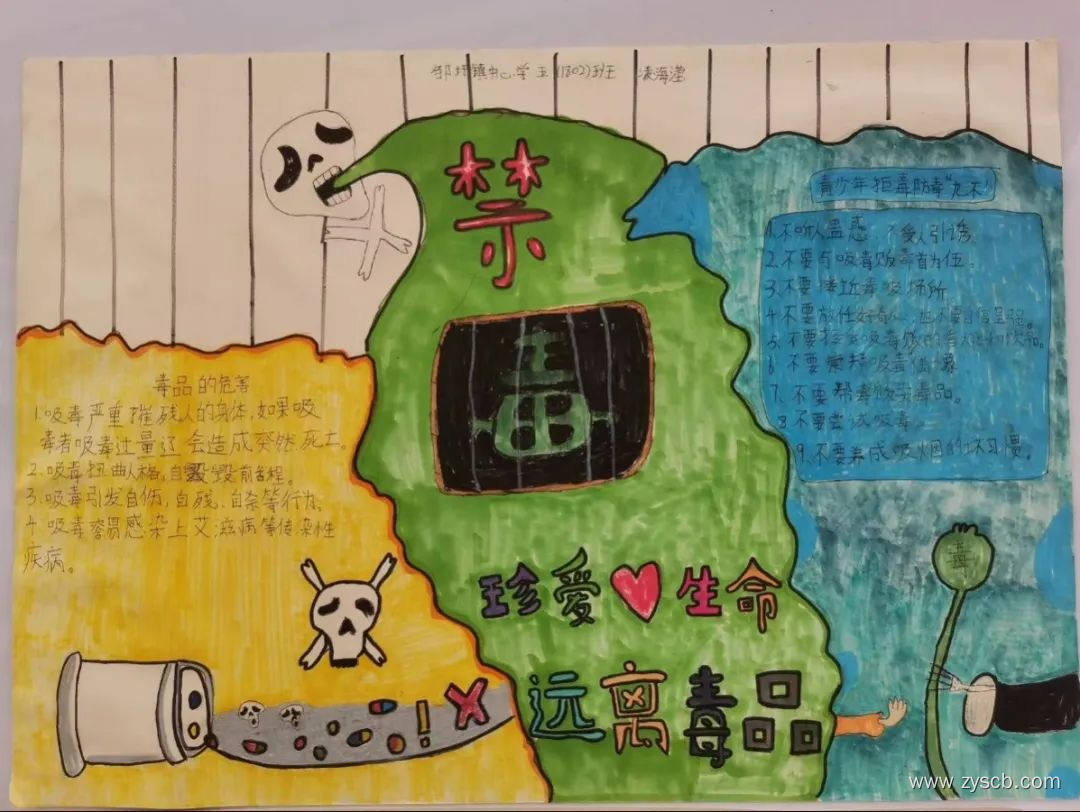 邹圩镇中心学 五(1802)班 凌海滢
禁
毒
青少年拒毒防毒"九不"
1.不听人蛊惑，不受人引诱。
2.不要与吸毒贩毒者为伍。
3.不要接近毒吸场所
4.不要放任好奇心，也不要自信逞强。
5.不要接受吸毒贩的香烟和饮品。
6.不要 吸毒
7.不要帮毒贩买毒品。
8.不要尝试吸毒。
9.不要养成吸烟的坏习惯。
毒品的危害
1.吸毒严重摧残人的身体，如果吸
毒者吸毒过量还会造成突然死亡。
2.吸毒扭曲人格，自毁前程。
3.吸毒引发自伤，自残，自杀等行为。
4.吸毒容易感染上艾滋病等传染性
疾病。
毒
珍爱生命
远离毒品
www.zyscb.com